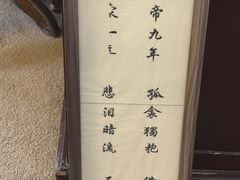 帝九年 孤衾獨抱
一 悲泪暗流